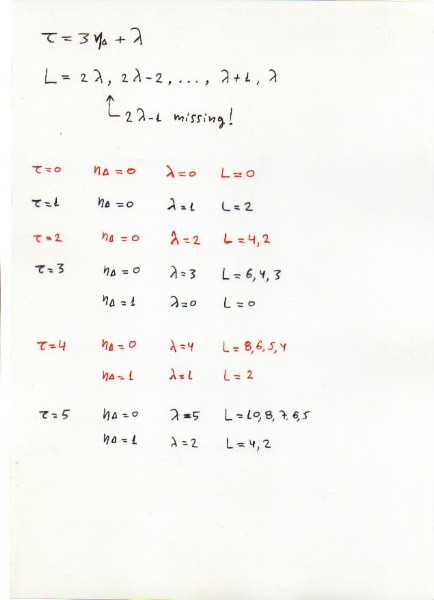 τ = 3 n∆ + λ
L = 2λ, 2λ-2, ..., λ+1, λ
2λ-1 missing!
τ=0 n∆=0 λ=0 L=0
τ=1 n∆=0 λ=1 L=2
τ=2 n∆=0 λ=2 L=4,2
τ=3 n∆=0 λ=3 L=6,4,3
n∆=1 λ=0 L=0
τ=4 n∆=0 λ=4 L=8,6,5,4
n∆=1 λ=1 L=2
τ=5 n∆=0 λ=5 L=10,8,7,6,5
n∆=1 λ=2 L=4,2